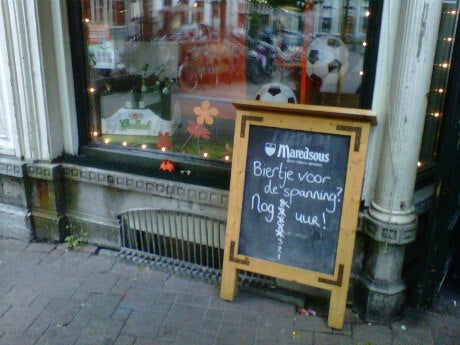 Maredsous
Biertje voor
de spanning?
Nog uur!